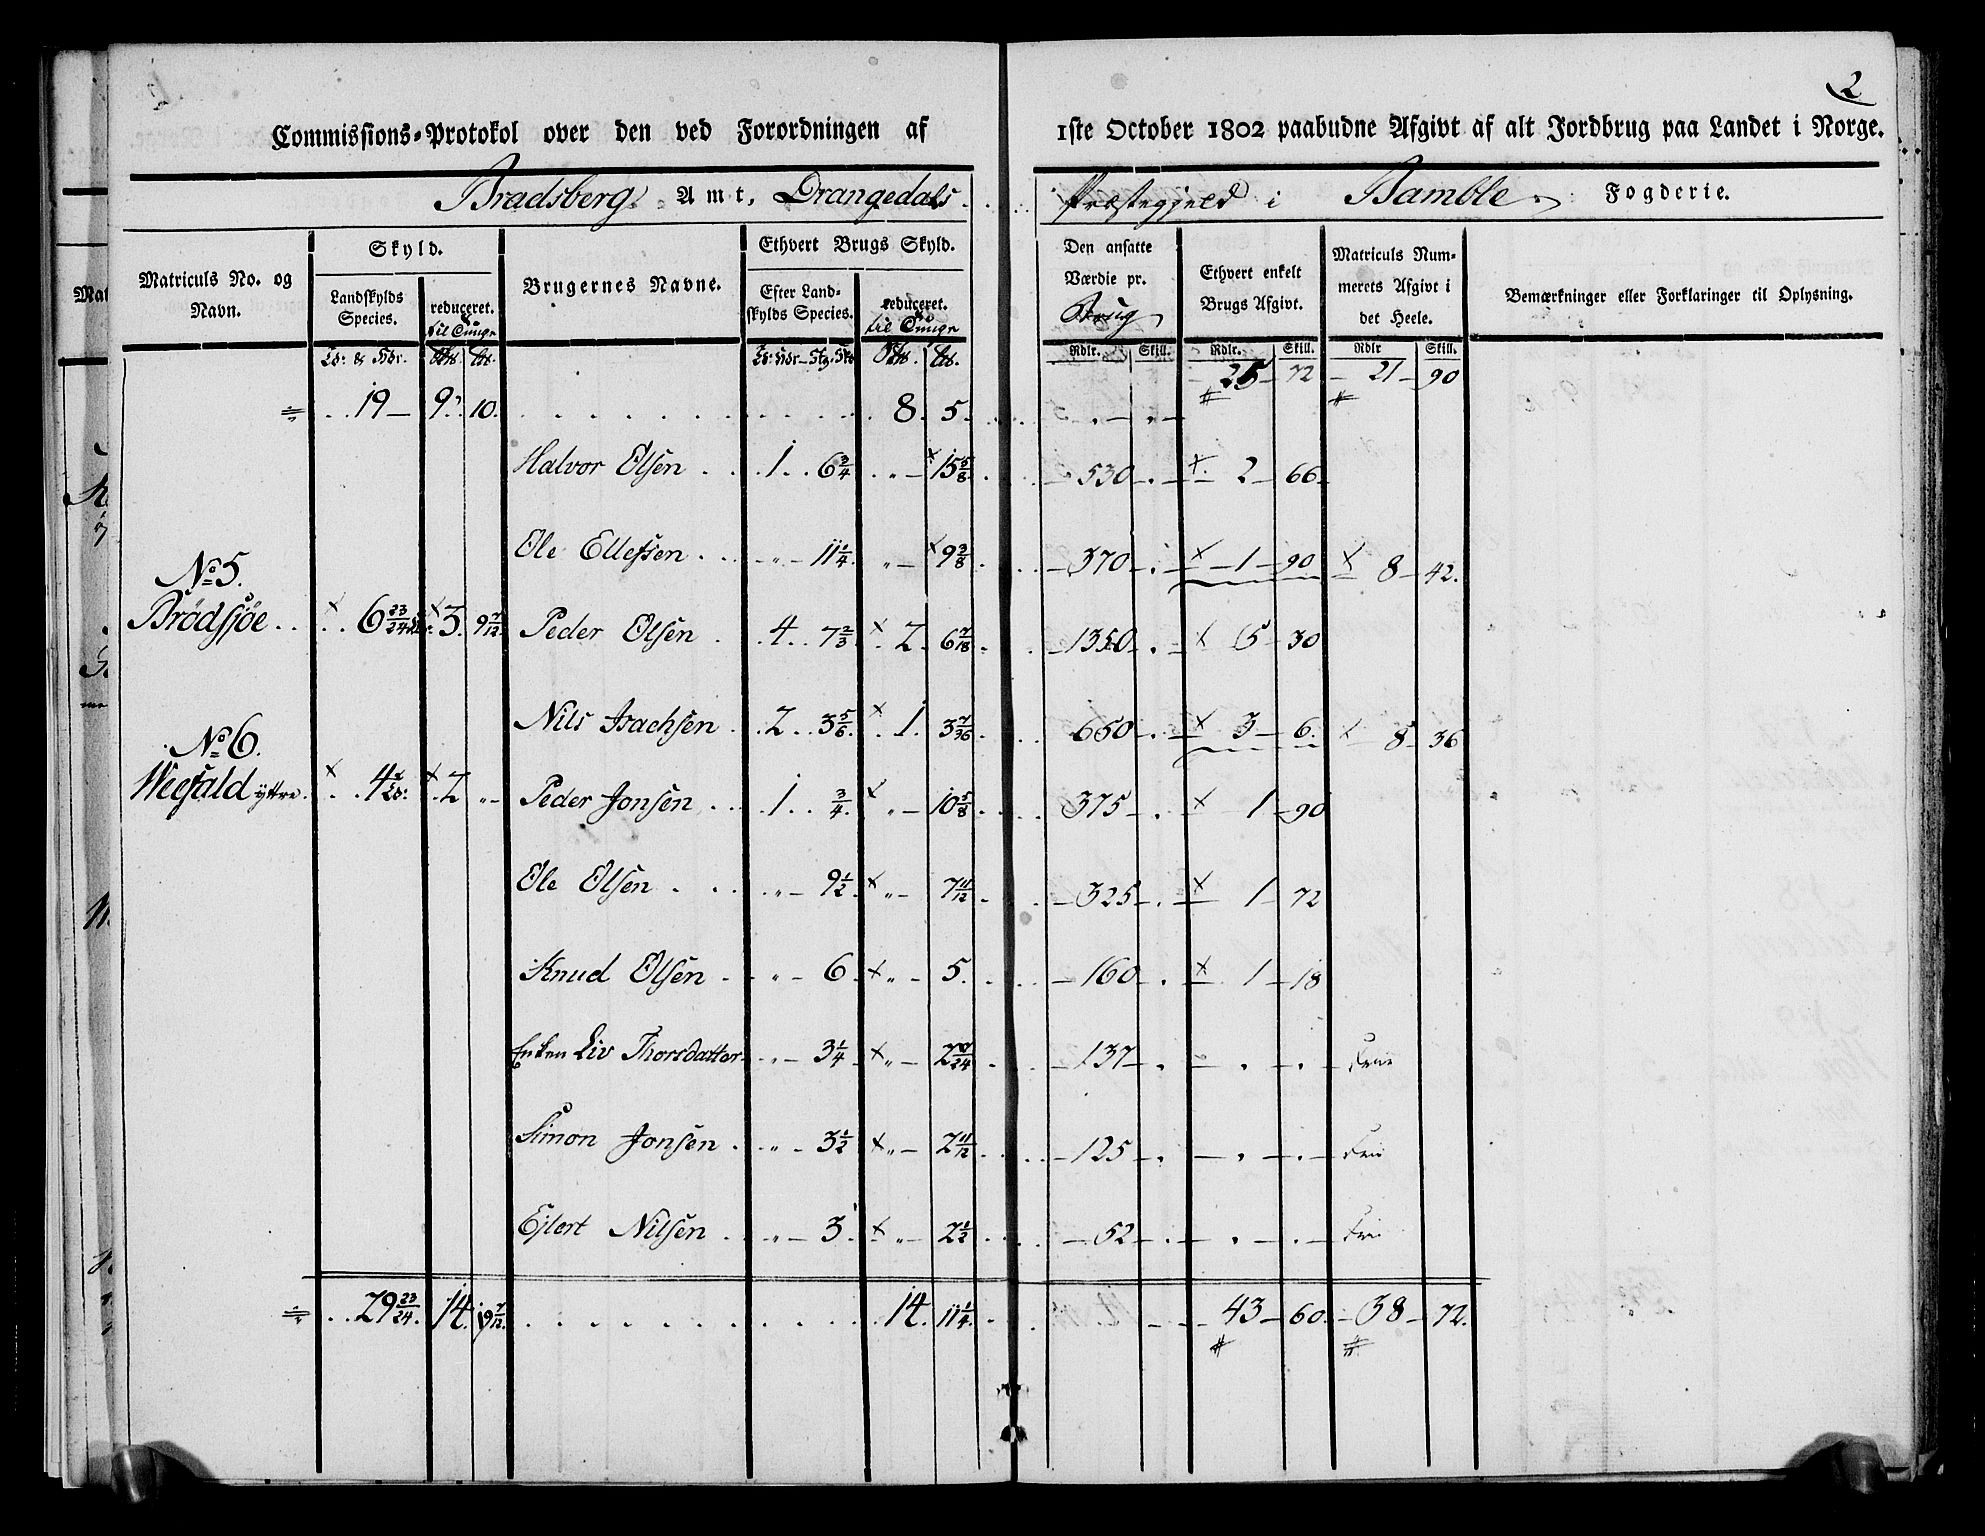 2
Commissions=Protokol over den ved Forordningen af 1ste October 1802 paabudne Afgivt af alt Jordbrug paa Landet i Norge.
Bradsberg Amt, Drangedals Præstegjeld i Bamble Fogderie.
Matriculs No. og Navn.
Skyld.
Landskylds Species.
reduceret. til Tunge
Brugernes Navne.
Ethvert Brugs Skyld.
Efter Landskylds Species.
reduceret. til Tunge
Den ansatte Værdie pr. Brug
Ethvert enkelt Brugs Afgivt.
Matriculs Nummerets Afgivt i det Heele.
Bemærkninger eller Forklaringer til Oplysning.
Rdlr. Skill. Rdlr. Skill. Rdlr Skill.
19 9 10. 8. 5. 25 72 21 90
Halvor Olsen 1 6 3/4 15 5/8 530 2 66
Ole Ellefsen 11 1/4 9 3/8 370 1 90 8 42.
No 5. Brödsjöe 6 23/24 3. 9 7/12 Peder Olsen 4 7 2/3 2 6 7/18 1350 5 30
Nils Isachsen 2 3 5/6 1. 3 7/36 650 3 6. 8 36
No 6. Weefald yttre 4 2 Peder Jonsen 1 3/4 10 5/8 375 1 90
Ole Olsen 9 1/2 7 11/12 325 1 72
Knud Olsen 6 5. 160 1 18
Enken Liv Thorsdatter 3 1/4 2 17/24 137 Frie
Simon Jonsen 3 1/2 2 11/12 125 Frie
Ejlert Nilsen 3 2 1/2 52 Frie
29 23/24 14. 9 7/12 14. 11 1/4 43 60. 38 72.